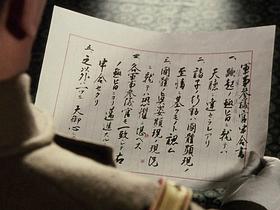 軍事参議官申合書
一、蹶起ノ趣旨ニ就テハ
天聴ニ達セラレアリ
二、諸子ノ行動ハ國體顕現ノ
至情ニ基クモノト認ム
三、國體ノ真姿顕現ノ現況
ニ就テハ恐懼ニ堪ヘス
四、各軍事参議官モ一致シテ右
ノ趣旨ニヨリ邁進スル
申合セタリ
五、之以外ハ一ツニ大御心